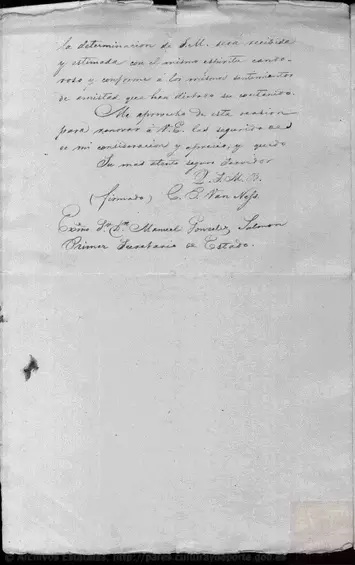 la determinacion de S.M. será recibida
y estimada con el mismo espiritu cando-
roso y conforme á los mismos sentimientos
de amistad que han dictado su contenido.
Me aprovecho de esta ocasion
para renovar á V.E. las seguridades
de mi consideracion y aprecio, y quedo
Su mas atento seguro servidor
Q. S. M. B.
(firmado) C. P. Van Ness.
Exmo Sr. Dn. Manuel Gonzalez Salmon
Primer Secretario de Estado.
© Archivos Estatales, http://pares.culturaydeporte.gob.es